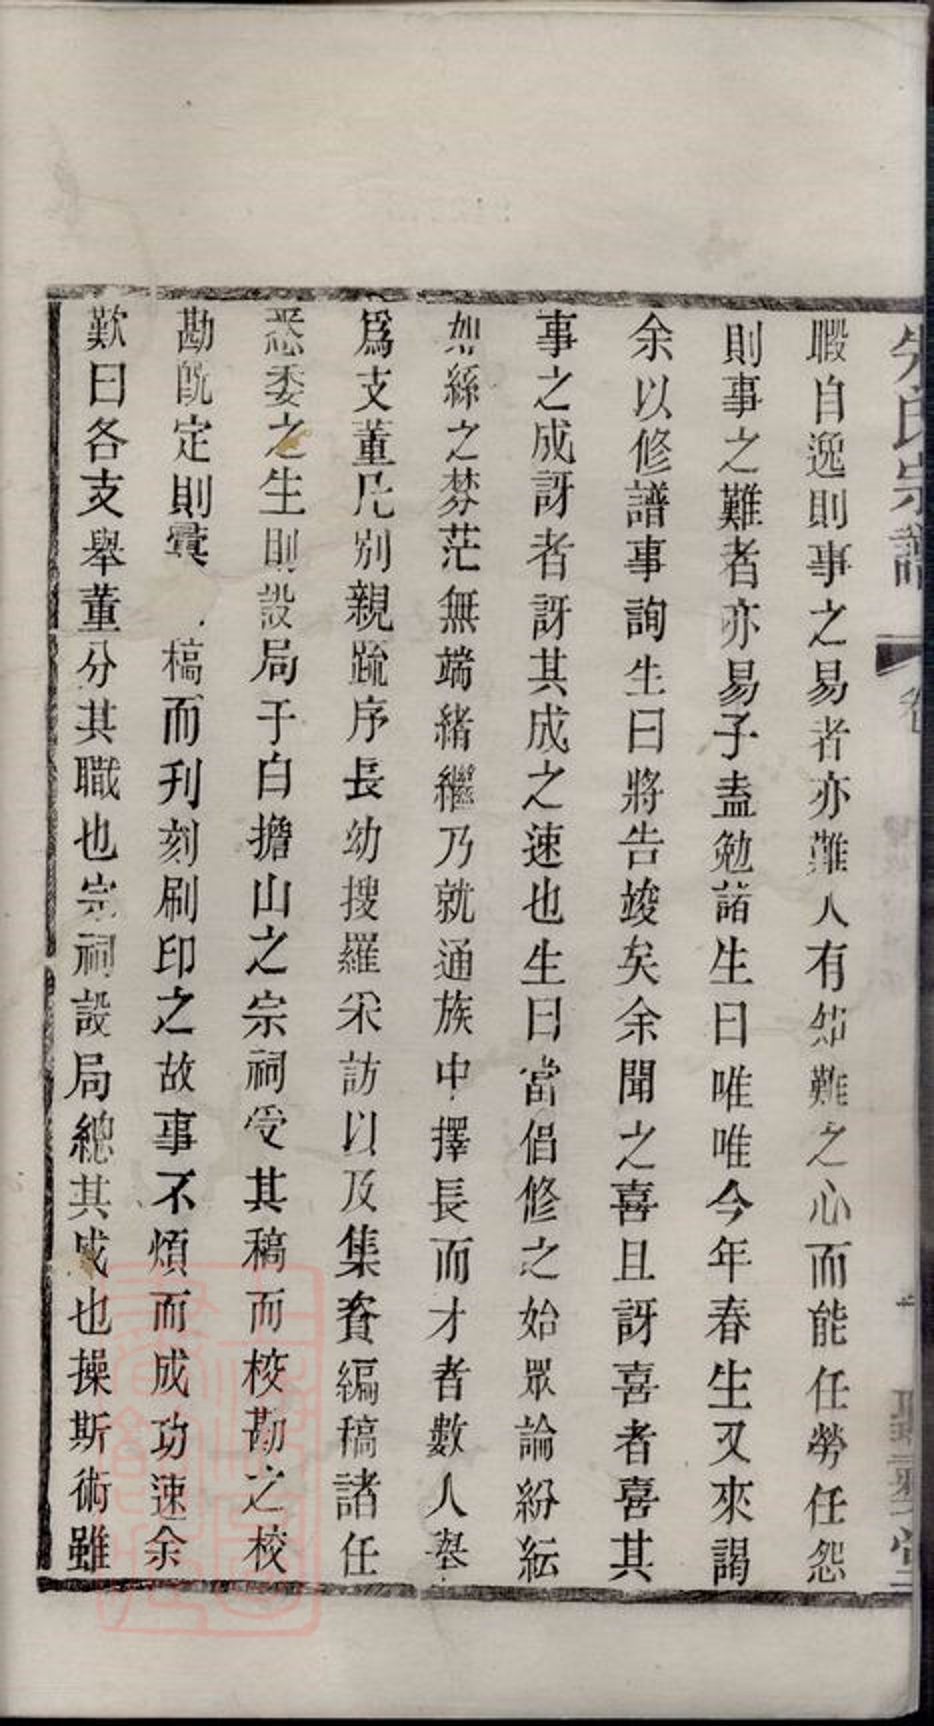 氏宗譜
暇自逸則事之易者亦難人有知難之心而能任勞任怨
則事之難者亦易子盍勉諸生曰唯唯今年春生又來謁
余以修譜事詢生曰將告竣矣余聞之喜且訝喜者喜其
事之成訝者訝其成之速也生曰當倡修之始眾論紛紜
如絲之棼茫無端緒繼乃就通族中擇長而才者數人舉
爲支董凡別親疏序長幼搜羅采訪以及集資編稿諸任
悉委之生則設局于白擔山之宗祠受其稿而校勘之校
勘旣定則彙稿而刊刻刷印之故事不煩而成功速余
歎曰各支舉董分其職也宗祠設局總其成也操斯術雖